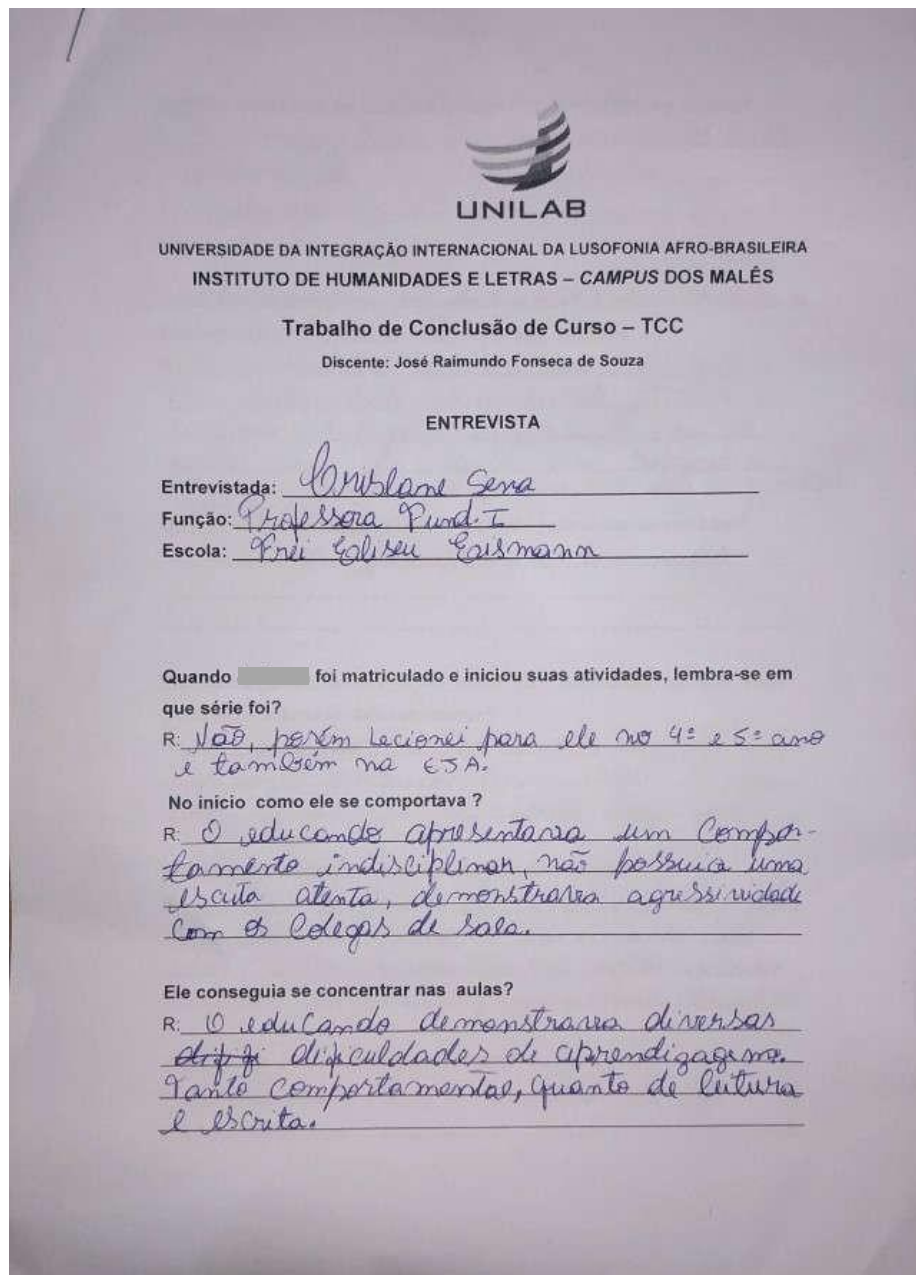 UNILAB
UNIVERSIDADE DA INTEGRAÇÃO INTERNACIONAL DA LUSOFONIA AFRO-BRASILEIRA
INSTITUTO DE HUMANIDADES E LETRAS – CAMPUS DOS MALÊS
Trabalho de Conclusão de Curso – TCC
Discente: José Raimundo Fonseca de Souza
ENTREVISTA
Entrevistada: Crislane Sena
Função: Professora Fund. I
Escola: Frei Eliseu Eismann
Quando foi matriculado e iniciou suas atividades, lembra-se em
que série foi?
R: Não, porém lecionei para ele no 4º e 5º ano
e também na EJA.
No inicio como ele se comportava ?
R: O educando apresentava um compor-
tamento indisciplinar, não possuia uma
escuta atenta, demonstrava agressividade
com os colegas de sala.
Ele conseguia se concentrar nas aulas?
R: O educando demonstrava diversas
dificuldades de aprendizagem.
Tanto comportamental, quanto de leitura
e escrita.